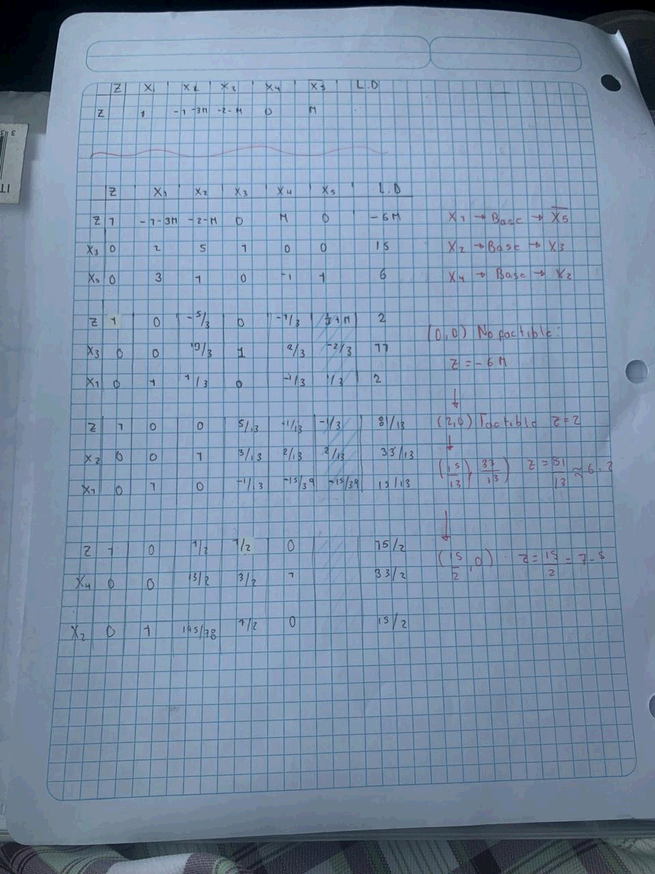 Z X₁ X₂ X₃ X₄ X₅ L.D
Z 1 -1-3M -2-M 0 M
Z X₁ X₂ X₃ X₄ X₅ L.D
Z 1 -1-3M -2-M 0 M 0 -6M
X₃ 0 2 5 1 0 0 15
X₅ 0 3 1 0 -1 1 6
X₁ → Base → X₅
X₂ → Base → X₃
X₄ → Base → X₂
Z 1 0 -5/3 0 -1/3 1/3+M 2
X₃ 0 0 13/3 1 2/3 -2/3 11
X₁ 0 1 1/3 0 -1/3 1/3 2
(0,0) No factible:
Z = -6M
↓
Z 1 0 0 5/13 -1/13 -1/3 81/13
X₂ 0 0 1 3/13 2/13 2/13 33/13
X₁ 0 1 0 -1/13 -15/39 -15/39 15/13
(2,0) Factible z=2
↓
(15/13, 33/13) z = 81/13 ≈ 6.2
↓
Z 1 0 1/2 1/2 0 15/2
X₄ 0 0 13/2 3/2 1 33/2
X₂ 0 1 195/78 1/2 0 15/2
(15/2, 0) z = 15/2 = 7.5